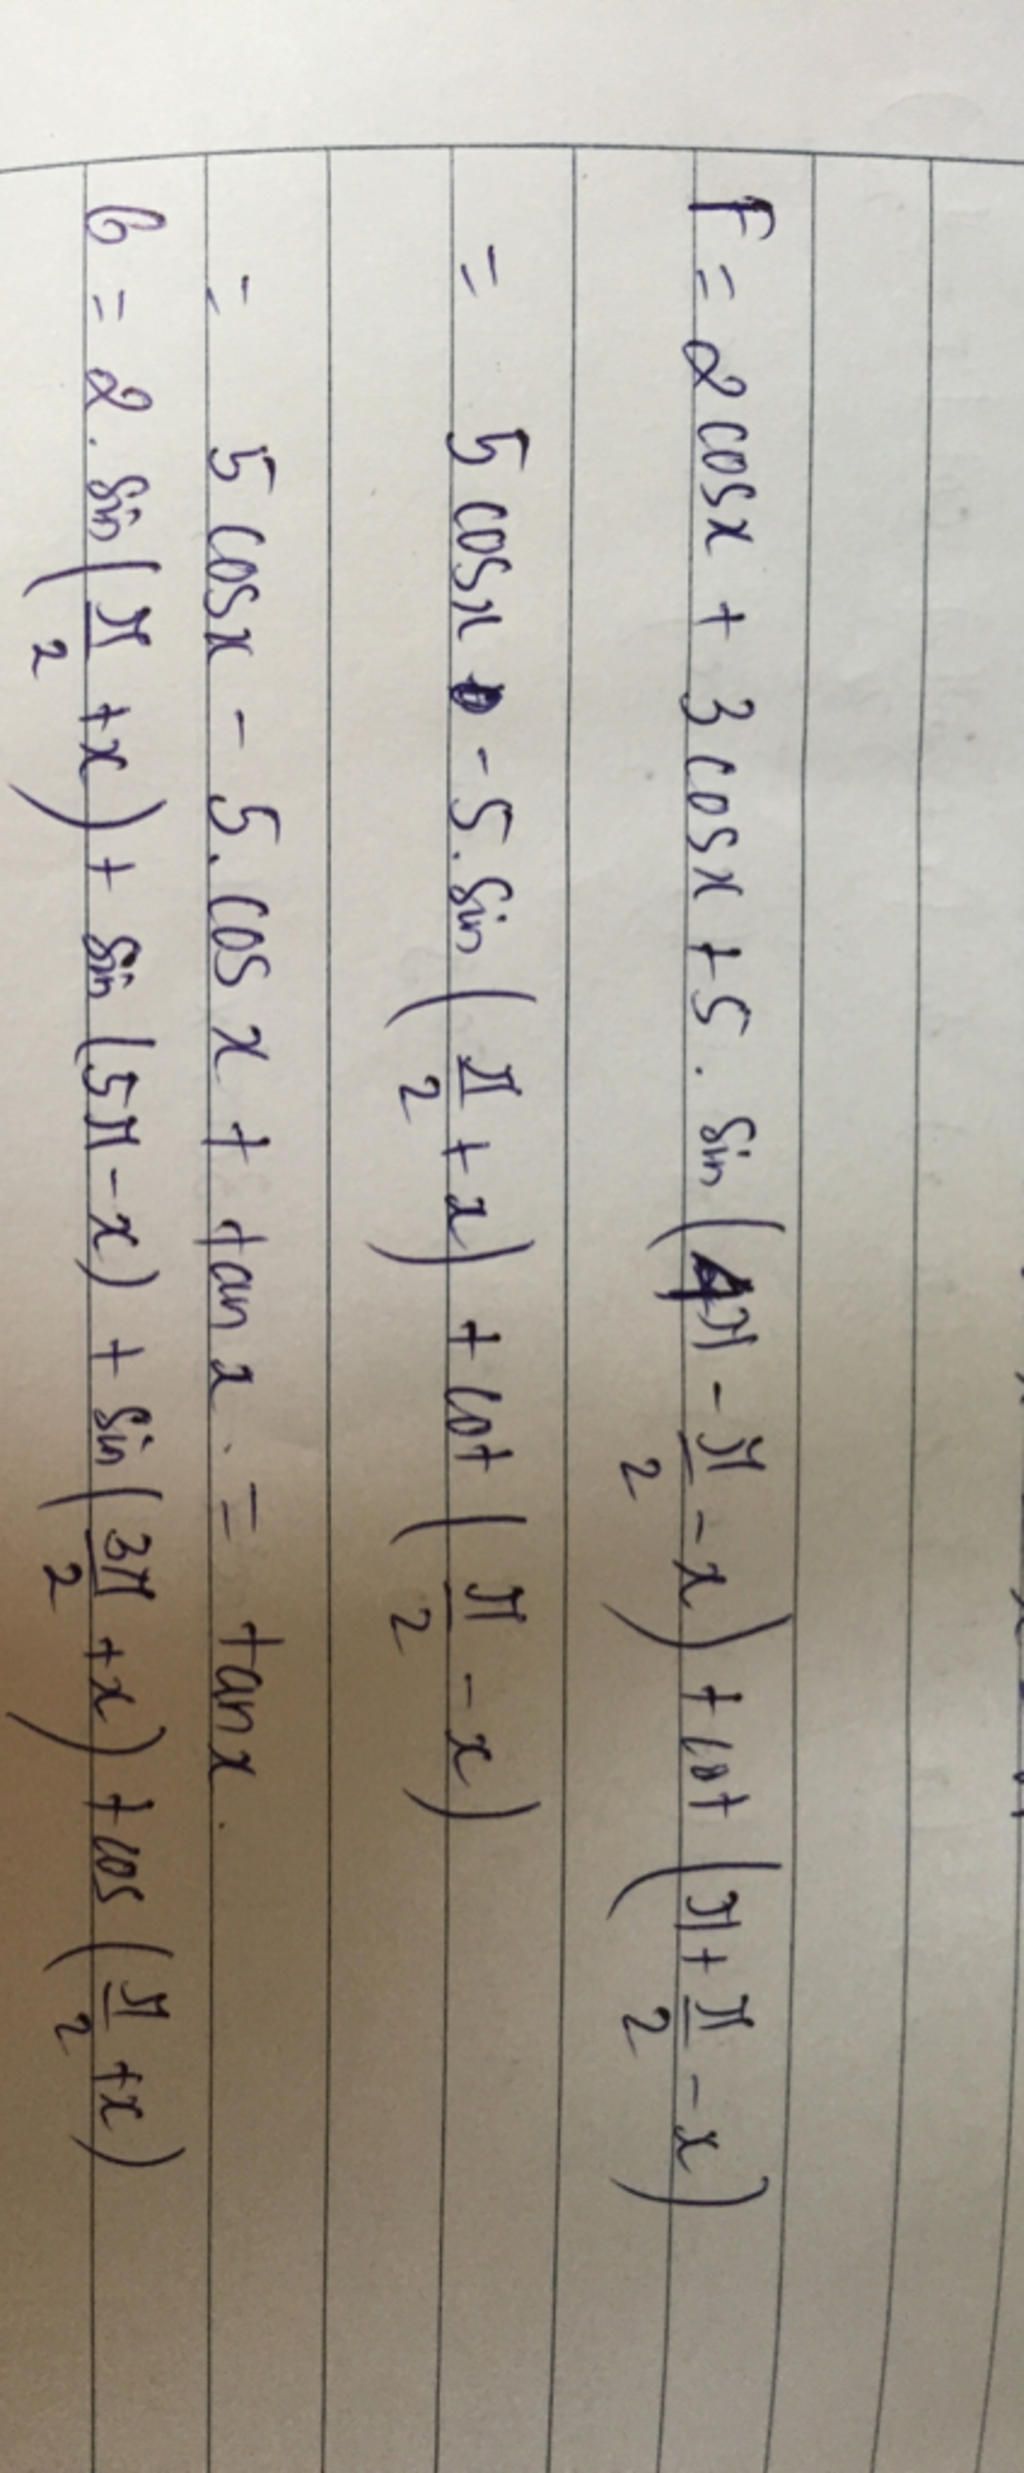 F = 2cosx + 3cosx + 5. sin (4π - π/2 - x) + cot (π + π/2 - x)
= 5 cosx - 5. sin (π/2 + x) + cot (π/2 - x)
= 5 cosx - 5. cos x + tan x . = tan x .
G = 2. sin (π/2 + x) + sin (5π - x) + sin (3π/2 + x) + cos (π/2 + x)